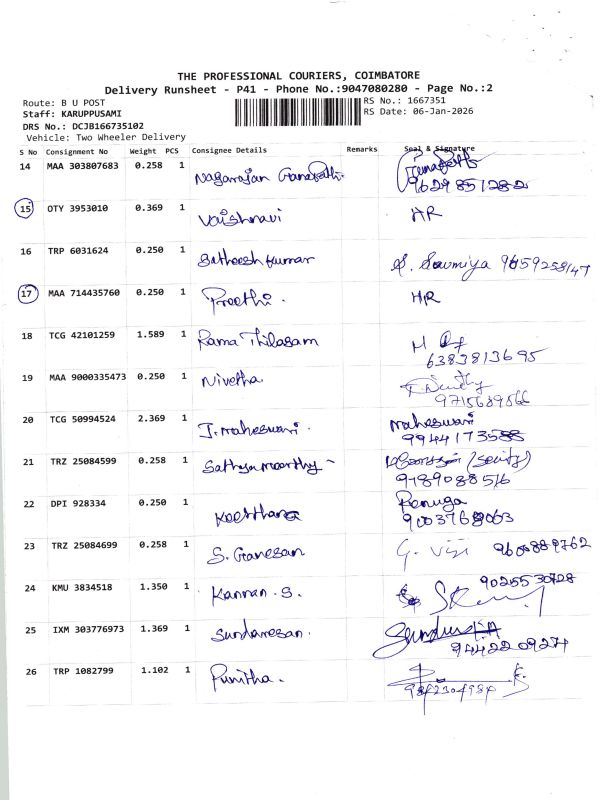 THE PROFESSIONAL COURIERS, COIMBATORE
Delivery Runsheet - P41 - Phone No.:9047080280 - Page No.:2
Route: B U POST RS No.: 1667351
Staff: KARUPPUSAMI RS Date: 06-Jan-2026
DRS No.: DCJB166735102
Vehicle: Two Wheeler Delivery
S No Consignment No Weight PCS Consignee Details Remarks Seal & Signature
14 MAA 303807683 0.258 1 Nagarajan Ganapathi.
9629851282
15 OTY 3953010 0.369 1 Vaishnavi HR
16 TRP 6031624 0.250 1 Satheesh kumar S. Sowmiya 9659258147
17 MAA 714435760 0.250 1 Preethi. HR
18 TCG 42101259 1.589 1 Rama Thilagam
6383813695
19 MAA 9000335473 0.250 1 Nivetha
9715689866
20 TCG 50994524 2.369 1 J. Maheswari. Maheswari
9944173588
21 TRZ 25084599 0.258 1 Sathyamoorthy - (Security)
9789088516
22 DPI 928334 0.250 1 Keerthana Renuga
9003768063
23 TRZ 25084699 0.258 1 S. Ganesan G. Viji 9600889762
24 KMU 3834518 1.350 1 Kannan. S. 9025530728
25 IXM 303776973 1.369 1 Sundaresan.
9442209274
26 TRP 1082799 1.102 1 Punitha.
9842304984